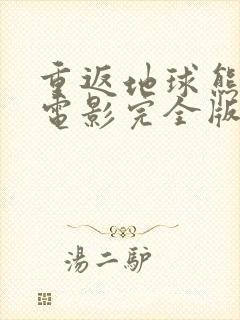 重返地球熊
電影完全版
湯二馿